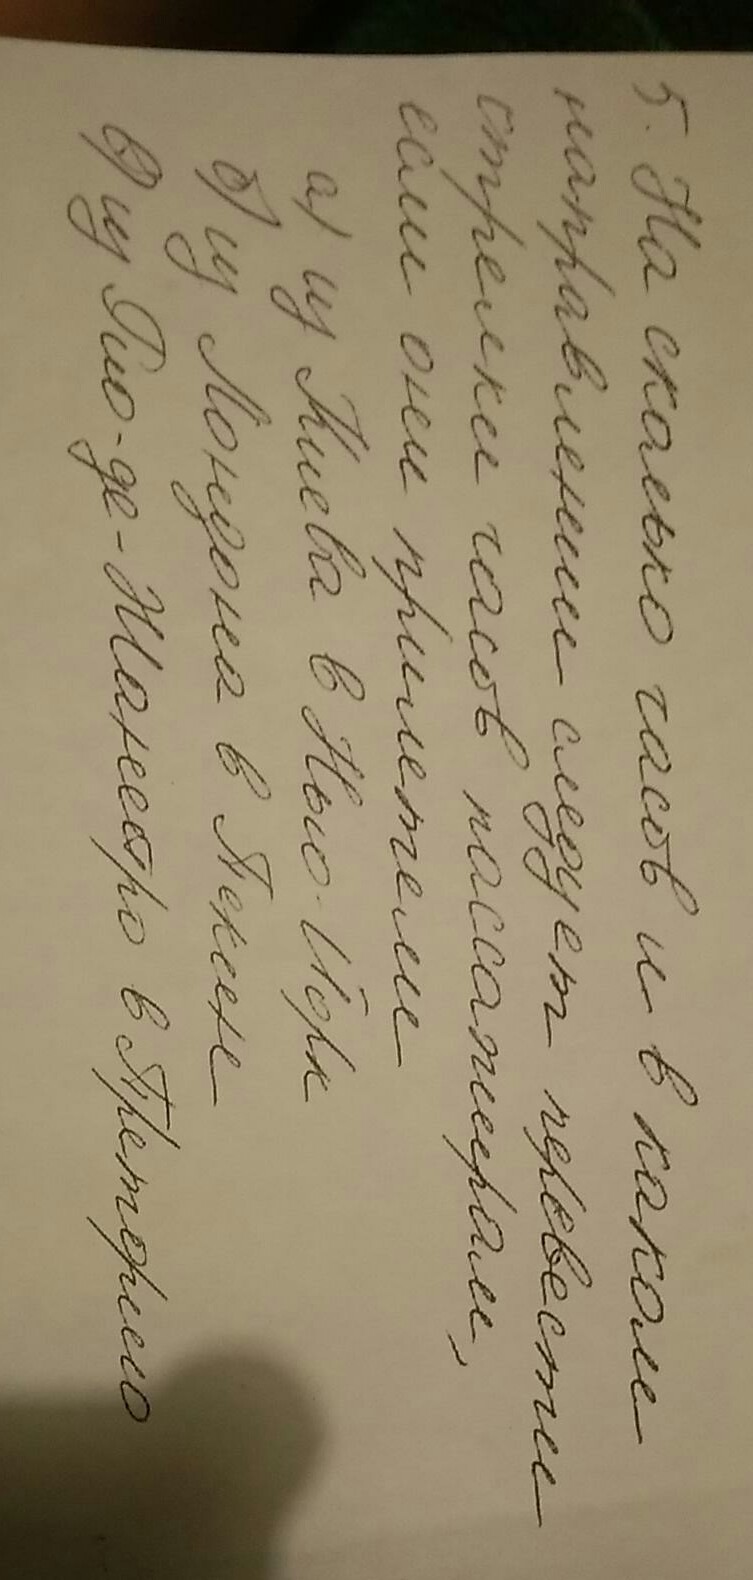 5. На сколько часов и в каком
направлении следует перевести
стрелки часов пассажирам,
если они прилетели
а) из Киева в Нью-Йорк
б) из Лондона в Пекин
в) из Рио-де-Жанейро в Преторию